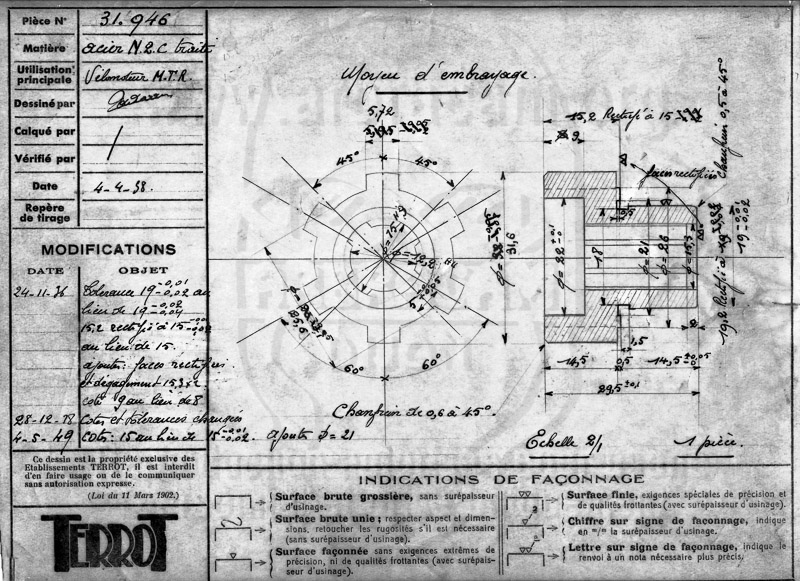 Pièce N° 31.946
Matière acier N.2.C traité
Utilisation principale Vélomoteur M.T.R.
Dessiné par
Calqué par
Vérifié par
Date 4-4-38.
Repère de tirage
MODIFICATIONS
DATE OBJET
24-11-36 tolérance 19 -0,01 -0,02 au
lieu de 19 -0,02 -0,04
15,2 rectifié à 15
au lieu de 15.
ajouté: faces rectifiées
et dégagement 15,3x2
coté 9 au lieu de 8
28-12-38 Cotes et tolérances changées
4-5-49 cotes: 15 au lieu de 15 -0,01 -0,02. ajouté φ=21
Ce dessin est la propriété exclusive des
Etablissements TERROT, il est interdit
d'en faire usage ou de le communiquer
sans autorisation expresse.
(Loi du 11 Mars 1902.)
TERROT
Moyeu d'embrayage.
5,72
45° 45°
60° 60°
Chanfrein de 0,6 à 45°.
31,6
15,2 Rectifié à 15
9
faces rectifiées
Chanfrein 0,5 à 45°
φ=22 +0,1 -0
18
φ=21
φ=26
19 -0,01 -0,02
19,2 Rectifié à 19
0,5
1,5
14,5 0,5 14,5 ±0,05
29,5 ±0,1
Echelle 2/1
1 pièce.
INDICATIONS DE FAÇONNAGE
Surface brute grossière, sans surépaisseur
d'usinage.
Surface brute unie; respecter aspect et dimen-
sions, retoucher les rugosités s'il est nécessaire
(sans surépaisseur d'usinage).
Surface façonnée sans exigences extrêmes de
précision, ni de qualités frottantes (avec surépais-
seur d'usinage).
Surface finie, exigences spéciales de précision et
de qualités frottantes (avec surépaisseur d'usinage).
Chiffre sur signe de façonnage, indique
en m/m la surépaisseur d'usinage.
Lettre sur signe de façonnage, indique le
renvoi à un nota nécessaire plus précis.